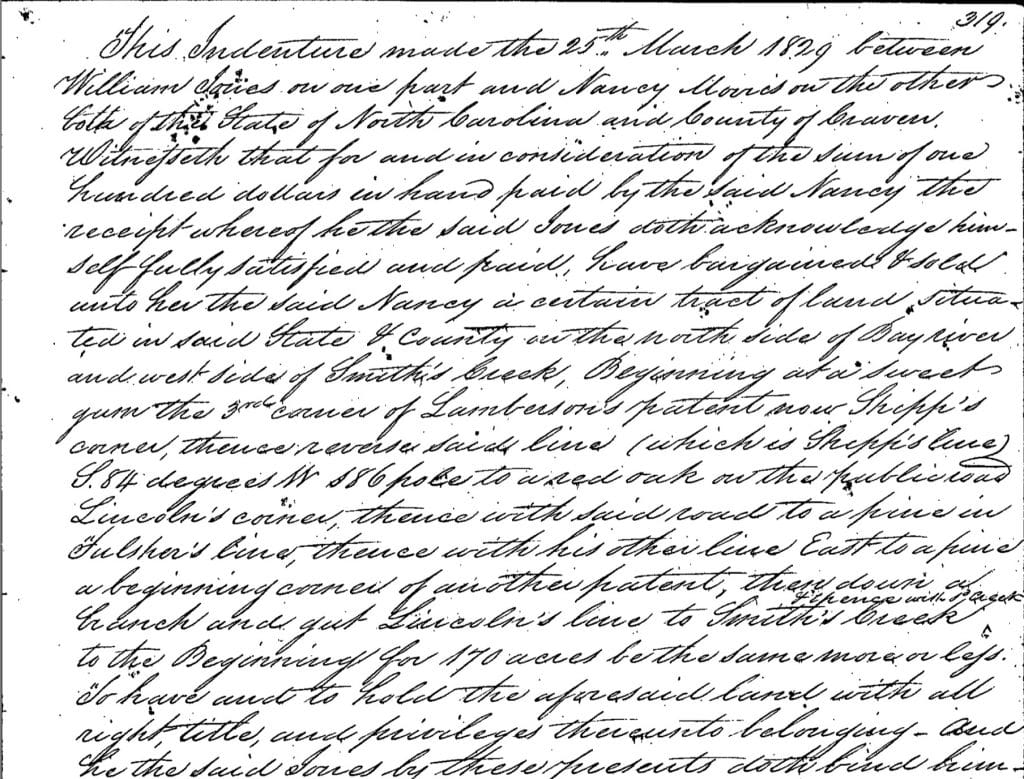 319.
This Indenture made the 25th March 1829 between
William Jones on one part and Nancy Morris on the other
both of the State of North Carolina and County of Craven.
Witnesseth that for and in consideration of the sum of one
hundred dollars in hand paid by the said Nancy the
receipt whereof he the said Jones doth acknowledge him-
self fully satisfied and paid, have bargained & sold
unto her the said Nancy a certain tract of land, situa-
ted in said State & County on the north side of Bay river
and west side of Smith's Creek, Beginning at a sweet
gum the 3rd corner of Lamberson's patent now Shipp's
corner, thence reverse said line (which is Shipp's line)
S. 84 degrees W 186 pole to a red oak on the public road
Lincoln's corner, thence with said road to a pine in
Fulsher's line, thence with his other line East to a pine
a beginning corner of another patent, then down a
& thence with sd Creek
branch and gut Lincoln's line to Smith's Creek ^
to the Beginning for 170 acres be the same more or less.
To have and to hold the aforesaid land with all
right, title, and privileges thereunto belonging - and
he the said Jones by these presents doth bind him-